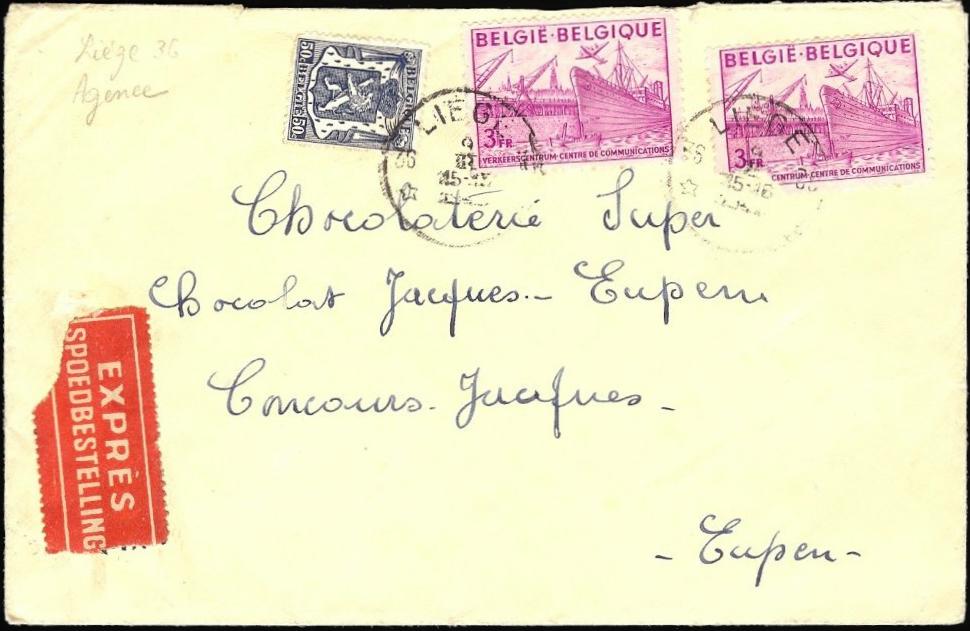 Liége 36
Agence
50 · BELGIE · 50
BELGIË·BELGIQUE
3 FR
VERKEERSCENTRUM·CENTRE DE COMMUNICATIONS
BELGIË·BELGIQUE
3 FR
CENTRUM·CENTRE DE COMMUNICATIONS
LIEGE
36
15-16
LIEGE
36
15-16
Chocolaterie Super
Chocolat Jacques.- Eupen
Concours. Jacques -
- Eupen -
EXPRÈS
SPOEDBESTELLING